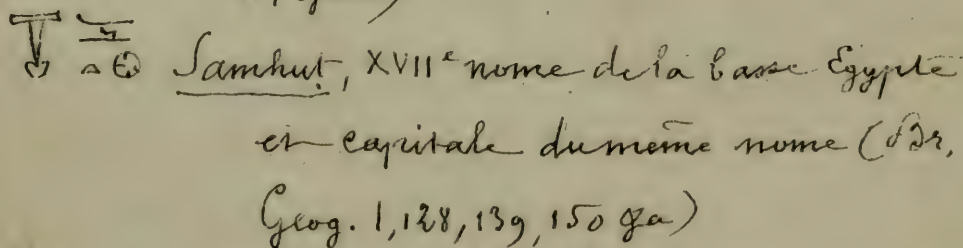 Samhut, XVIIe nome de la basse Egypte
et capitale du même nome (Br,
Geog. 1, 128, 139, 150